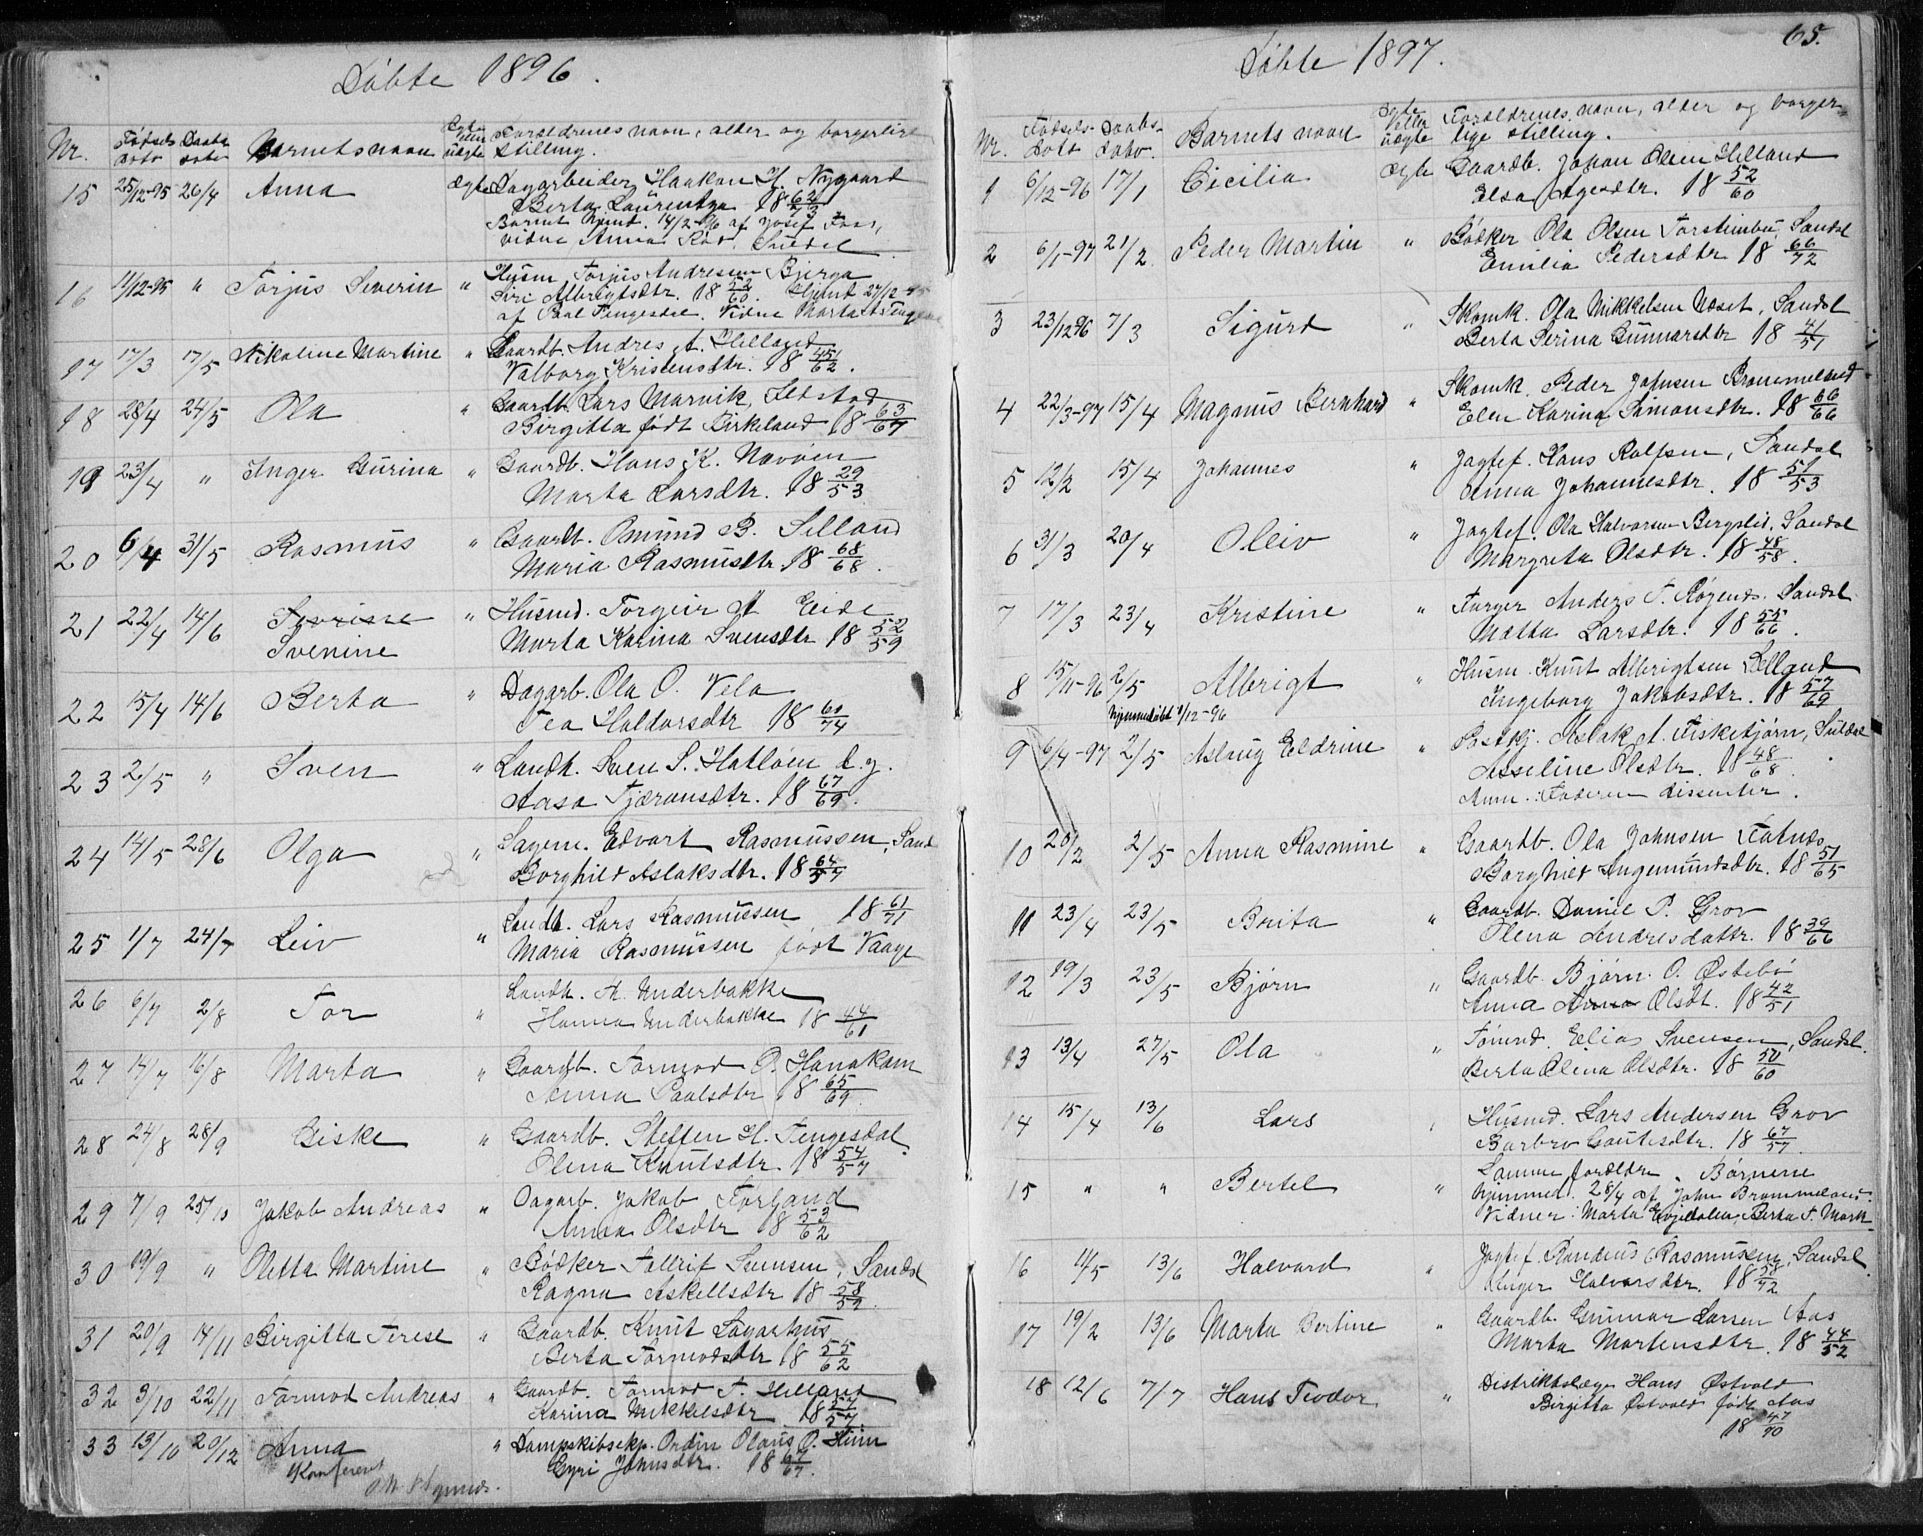 Døbte 1896.
Nr. Fødsels dato Daabs dato Barnets navn Egte eller uægte Forældrenes navn, alder og borgerlige stilling.
15 25/12-95 26/4 Anna Ægte Dagarbeider Haakon H. Nygaard
Berta Laurentza 18
Barnet hjmd. 14/2-96 af Josef Foss,
vidne Anna Rød, Suldal
16 11/12-95 " Torjus Severin " Husm Torjus Andresen Bjerga
Siri Albrigtsdtr. 18 52/60. Hjmd 27/12-95
af Paal Tengesdal. Vidne Marta Tengesdal
17 17/3 17/5 Nikoline Martine " Gaardb. Andres A. Helland
Valborg Kristensdtr. 18 45/62.
18 28/4 24/5 Ola " Gaardb. Lars Marvik,
Birgitta født Birkeland 18 63/67
19 23/4 " Inger Gurina " Gaardb. Hans K. Nævøen
Marta Larsdtr. 18 29/53
20 6/4 31/5 Rasmus " Gaardb. Osmund B. Selland
Maria Rasmusdtr 18 68/68.
21 22/4 14/6 Svenine " Husmd. Torgeir A Eide
Marta Karina Svensdtr 18 52/59
22 15/4 14/6 Berta " Dagarb. Ola O. Vela
Tea Haldorsdtr 18 60/74
23 2/5 " Sven " Landh. Sven S. Hatløen d.y.
Aasa Tjæransdtr. 18 67/69.
24 14/5 28/6 Olga " Sagem. Edvart Rasmussen, Sand
Borghild Aslaksdtr. 18 64/57
25 1/7 24/7 Leiv " Landh. Lars Rasmussen 18 61/71
Maria Rasmussen født Vaage
26 6/7 2/8 Tor " Landh. A. Underbakke
Hanna Underbakke 18 44/61
27 14/7 16/8 Marta " Gaardb. Tormod O. Hanakam
Anna Paalsdtr 18 65/69.
28 24/8 28/9 Giske " Gaardb. Steffen H. Tengesdal
Olena Knutsdtr. 18 54/57
29 7/9 25/10 Jakob Andreas " Dagarb. Jakob Førland
Anna Olsdtr 18 53/62
30 19/9 " Oletta Martine " Bødker Tallrif Samsen, Sandsl
Ragna Askellsdtr 18 58/59.
31 20/9 14/11 Birgitta Terese " Gaardb. Knut Lagarhus
Berta Tormodsdtr 18 55/62
32 3/10 22/11 Tormod Andreas " Gaardb. Tormod T. Helland
Karina Mikkelsdtr 18 57/57
33 13/10 20/12 Anna " Dampskibsekp. Olaus O. Hiim
Gyri Johnsdtr. 18 67/67.
Konfereret
65.
Døbte 1897.
Nr. Fødsels dato Daabs dato. Barnets navn Egte eller uægte Forældrenes navn, alder og borgerlige stilling.
1 6/12-96 17/1 Cicilia Ægte Gaardb. Johan Olsen Helland
Elsa Agesdtr. 18 52/60
2 6/1-97 21/2 Peder Martin " Bødker Ola Olsen Torsteinbu, Sandsl
Emilia Pedersdtr 18 66/72
3 23/12 96 7/3 Sigurd " Skomk. Ola Mikkelsen Næset, Sandsl
Berta Serina Gunnarsdtr 18 41/51
4 22/3-97 15/4 Magnus Bernhard " Skomk. Peder Johnsen Brommeland
Elen Karina Simonsdtr. 18 66/66
5 12/2 15/4 Johannes " Jagtef. Hans Rolfsen, Sandsl
Anna Johannesdtr. 18 51/53
6 31/3 20/4 Oleiv " Jagtef. Ola Halvorsen Bergslid, Sandsl
Margreta Olsdtr. 18 48/58.
7 17/3 23/4 Kristine " Farger Anders T. Røgends. Sandsl
Mætta Larsdtr. 18 55/66.
8 15/11-96 2/5 Albrigt " Husm. Knut Albrigtsen Selland
hjemmedøbt 1/12-96 Ingeborg Jakobsdtr. 18 57/69
9 6/4-97 2/5 Aslaug Eldrine " Postkj. Aslak A. Fisketjørn, Suldal
Asseline Olsdtr. 18 48/68.
Anm. Faderen dissenter.
10 20/2 2/5 Anna Rasmine " Gaardb. Ola Johnsen Fatnes
Borghild Ingemundsdtr. 18 51/65
11 23/4 23/5 Brita " Gaardb. Daniel P. Grov
Olena Andresdattr. 18 39/66
12 19/3 23/5 Bjørn " Gaardb. Bjørn. O. Østebø
Anna Olsdt. 18 42/51
13 13/4 27/5 Ola " Tømmd. Elias Svensen, Sandsl.
Berta Olina Olsdtr. 18 50/60
14 15/4 13/6 Lars " Husmd. Lars Andersen Grov
Barbro Gautesdtr. 18 67/57.
15 " " Bertel " Samme forældre. Børnene
hjemmed. 28/4 af John Brommeland.
Vidner: Marta Berta T. Mark
16 11/5 13/6 Halvard " Jagtef. Randeus Rasmussen, Sandsl
Inger Halvorsdtr. 18 58/72
17 19/2 13/6 Marta Bertine " Gaardb. Gunnar Larsen Aas
Marta Mortensdtr. 18 44/52
18 12/6 7/7 Hans Teodor " Distriktslæge Hans Østvold
Birgitta Østvold født Aas
18 47/70